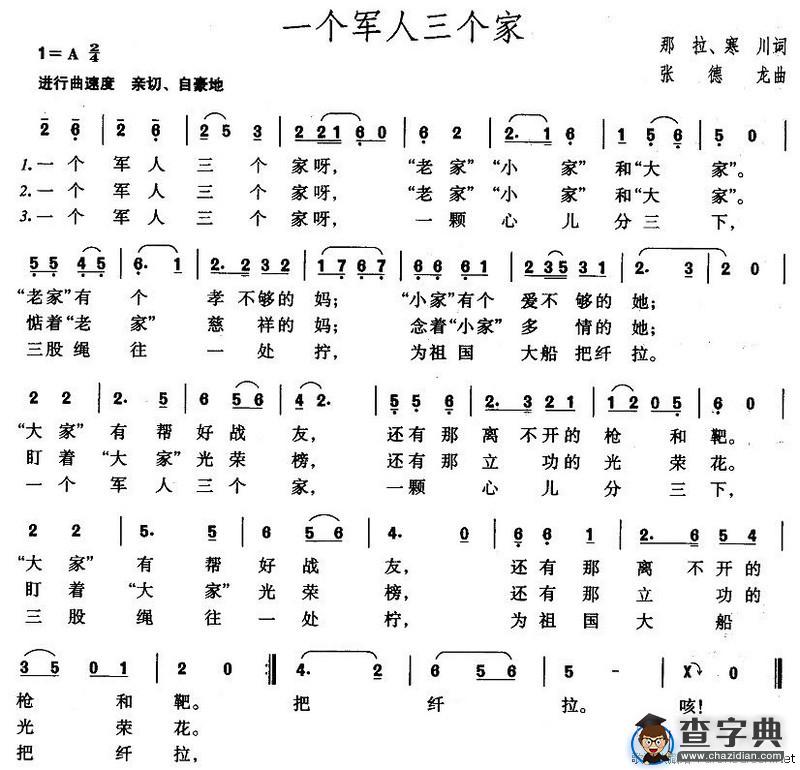 一个军人三个家
1=A 2/4
那 拉、寒 川词
进行曲速度 亲切、自豪地
张 德 龙曲
2 6 | 2 6 | 2 5 3 | 2 2 2 1 6 0 | 6 2 | 2. 1 6 | 1 5 6 | 5 0 |
1.一 个 军 人 三 个 家 呀, “老 家” “小 家” 和“大 家”。
2.一 个 军 人 三 个 家 呀, “老 家” “小 家” 和“大 家”。
3.一 个 军 人 三 个 家 呀, 一 颗 心 儿 分 三 下,
5 5 4 5 | 6. 1 | 2. 2 3 2 | 1 7 6 7 | 6 6 6 1 | 2 3 5 3 1 | 2. 3 | 2 0 |
“老家”有 个 孝 不够的 妈; “小家”有个 爱不够的 她;
惦着“老 家” 慈 祥的 妈; 念着“小家” 多 情的 她;
三股绳 往 一 处 拧, 为祖国 大船把纤 拉。
2 2 | 2. 5 | 6 5 6 | 4 2. | 5 5 5 | 2. 3 3 2 1 | 1 2 0 5 | 6 0 |
“大 家” 有 帮 好 战 友, 还 有 那 离 不开的 枪 和 靶。
盯 着 “大 家” 光 荣 榜, 还 有 那 立 功的 光 荣 花。
一 个 军 人 三 个 家, 一 颗 心 儿 分 三 下,
2 2 | 5. 5 | 6 5 6 | 4. 0 | 6 6 1 | 2. 6 | 5 4 |
“大 家” 有 帮 好 战 友, 还 有 那 离 不 开 的
盯 着 “大 家” 光 荣 榜, 还 有 那 立 功 的
三 股 绳 往 一 处 柠, 为 祖 国 大 船
3 5 0 1 | 2 0 :| 4. 2 | 6 5 6 | 5 - | X 0 ‖
枪 和 靶。 把 纤 拉。 咳!
光 荣 花。
把 纤 拉,
查字典
chazidian.com